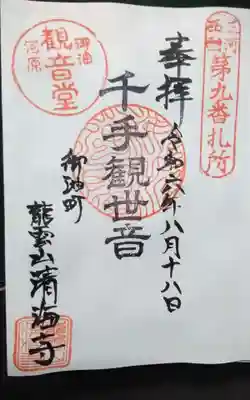 三河
西国
第九番札所
奉拝
令和六年八月十八日
千手観世音
御油
河原
観音堂
御油町
龍雲山清海寺